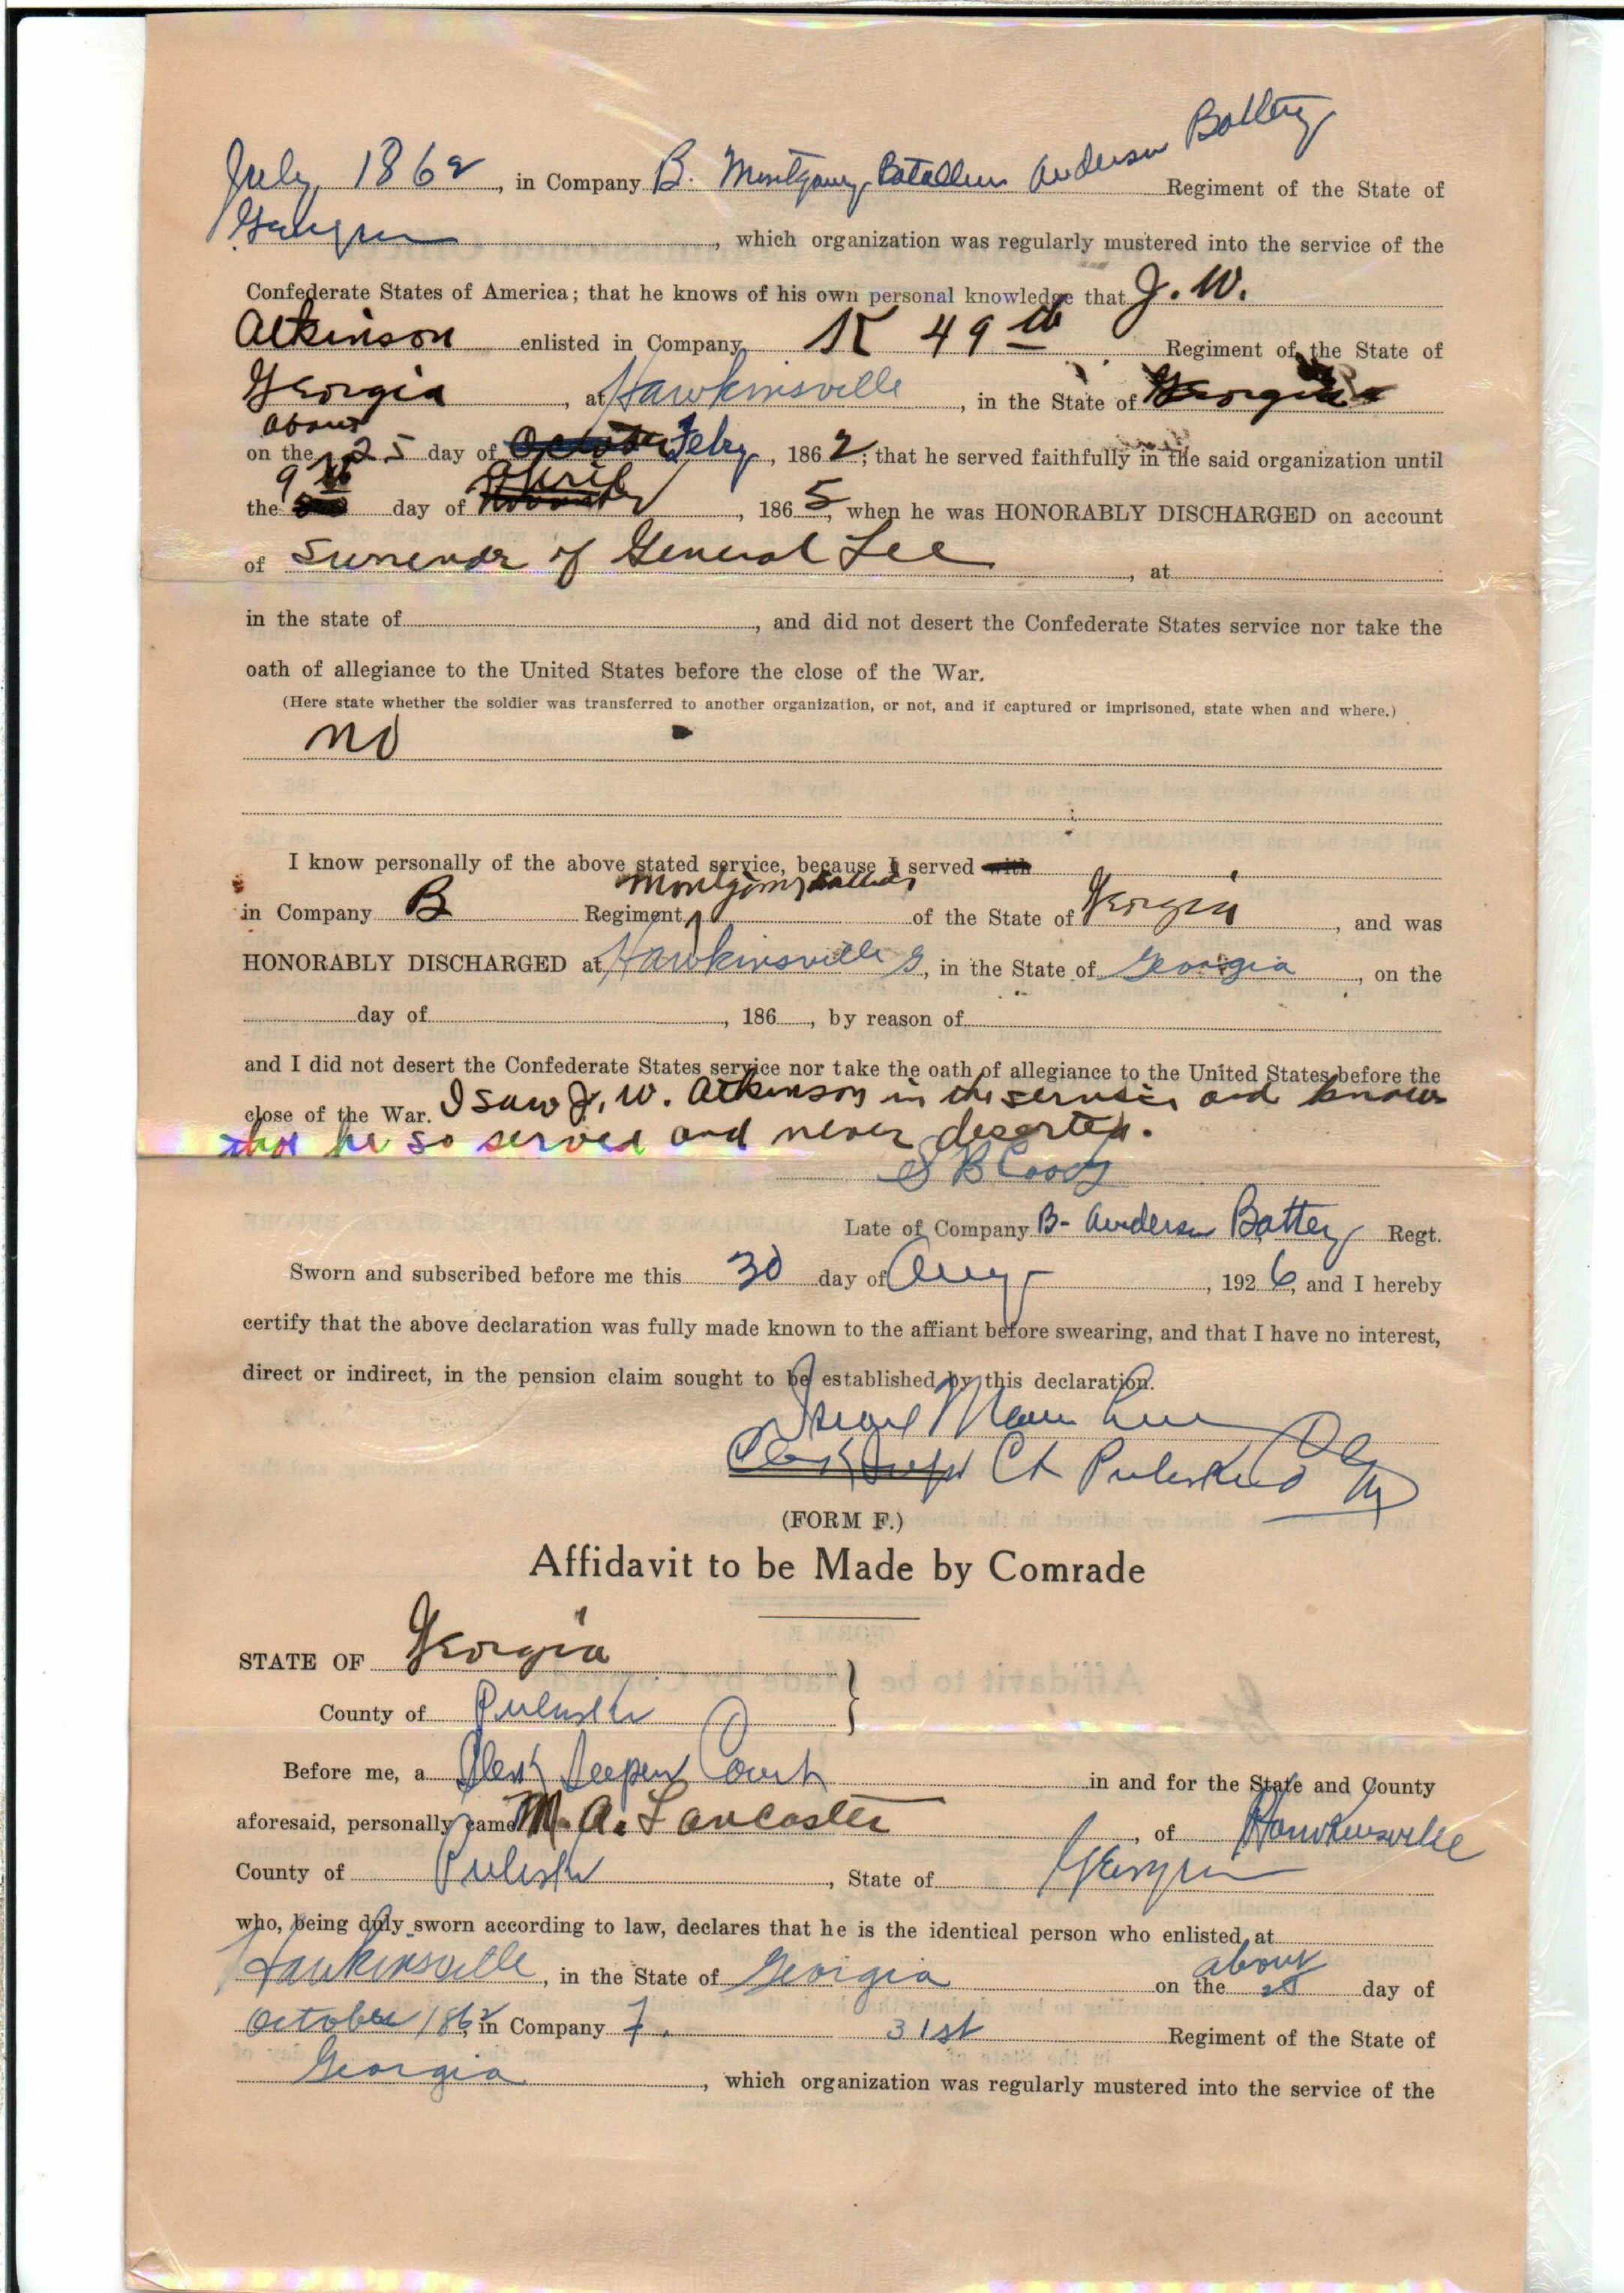 July, 1862, in Company B. Montgomery Batallion Anderson Battery Regiment of the State of
Georgia, which organization was regularly mustered into the service of the
Confederate States of America; that he knows of his own personal knowledge that J. W.
Atkinson enlisted in Company K 49th Regiment of the State of
Georgia, at Hawkinsville, in the State of Georgia
on the about 25 day of Febry, 1862; that he served faithfully in the said organization until
the 9th day of April, 1865, when he was HONORABLY DISCHARGED on account
of Surrender of General Lee, at
in the state of, and did not desert the Confederate States service nor take the
oath of allegiance to the United States before the close of the War.
(Here state whether the soldier was transferred to another organization, or not, and if captured or imprisoned, state when and where.)
no
I know personally of the above stated service, because I served with
in Company B Regiment Montgomery of the State of Georgia, and was
HONORABLY DISCHARGED at Hawkinsville G, in the State of Georgia, on the
day of, 186, by reason of
and I did not desert the Confederate States service nor take the oath of allegiance to the United States before the
close of the War. I saw J. W. Atkinson in the service and know
that he so served and never deserted.
S B Coody
Late of Company B- Anderson Battery Regt.
Sworn and subscribed before me this 30 day of Aug, 1926, and I hereby
certify that the above declaration was fully made known to the affiant before swearing, and that I have no interest,
direct or indirect, in the pension claim sought to be established by this declaration.
Clerk Supr Ct Pulaski Co
(FORM F.)
Affidavit to be Made by Comrade
STATE OF Georgia
County of Pulaski
Before me, a Clerk Superior Court in and for the State and County
aforesaid, personally came M. A. Lancaster, of Hawkinsville
County of Pulaski, State of Georgia
who, being duly sworn according to law, declares that he is the identical person who enlisted at
Hawkinsville, in the State of Georgia on the about 25 day of
October 1862, in Company 7. 31st Regiment of the State of
Georgia, which organization was regularly mustered into the service of the